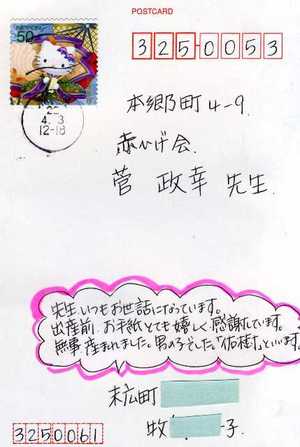 POSTCARD
50
3250053
本郷町4-9
赤かげ会
菅 政幸 先生
4. 3
12-18
先生いつもお世話になっています。
出産前 お手紙とても嬉しく感謝しています。
無事産まれました。男の子でした。「佑樹」といいます。
末広町
牧 子
3250061